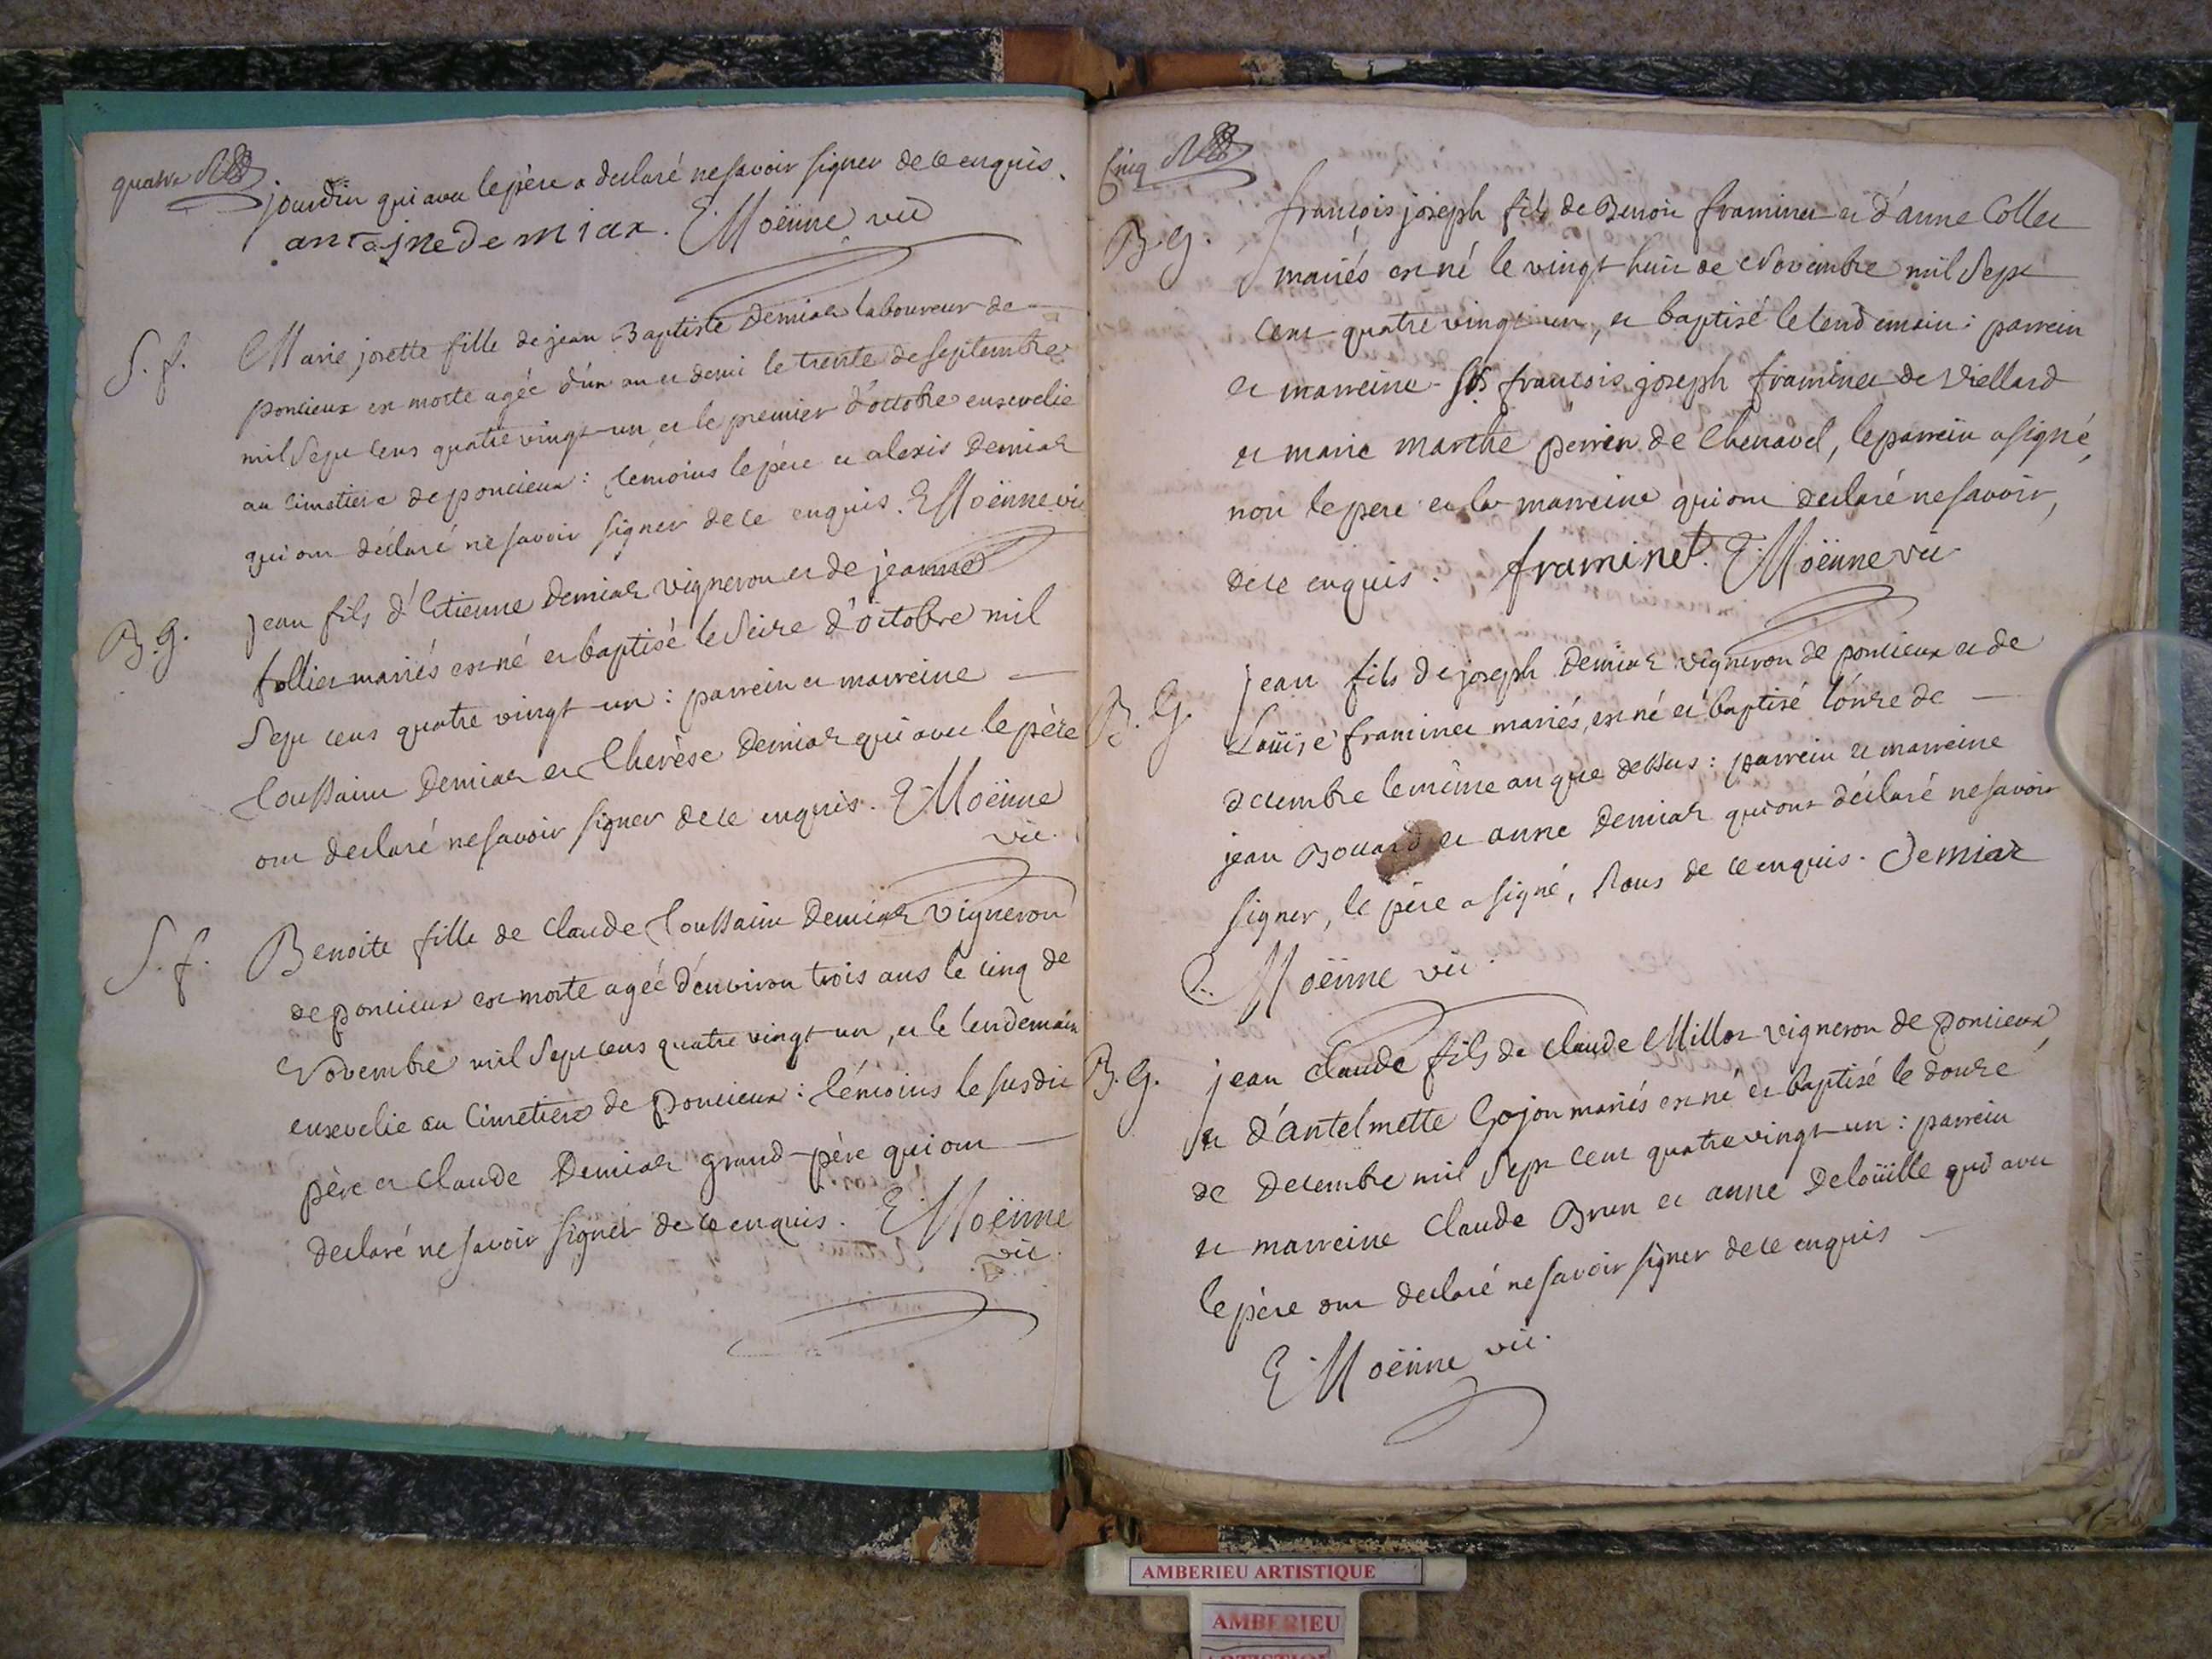 quatre
jourdin qui avec le père a declaré ne savoir signer de ce enquis.
antoine demiax. E. Moënne vic
S. f.
Marie josette fille de jean Baptiste Demiaz laboureur de
poncieux est morte agée d'un an et demi le trente de septembre
mil sept cens quatre vingt-un, et le premier d'octobre ensevelie
au cimetiere de poncieux : témoins le père et alexis Demiaz
qui ont déclaré ne savoir signer de ce enquis. E. Moënne vic
B. G.
jean fils d'Etienne Demiaz vigneron et de jeanne
follier mariés est né et baptisé le seize d'octobre mil
Sept cens quatre vingt-un : parrein et marreine
Toussaint Demiaz et Therèse Demiaz qui avec le père
ont declaré ne savoir signer de ce enquis. E. Moënne
vic.
S. f.
Benoite fille de Claude Toussaint Demiaz vigneron
de poncieux est morte agée d'environ trois ans le cinq de
Novembre mil sept cens quatre vingt-un, et le lendemain
ensevelie au Cimetiere de Poncieux : témoins le susdit
père et Claude Demiaz grand-père qui ont
declaré ne savoir signer de ce enquis. E. Moënne
vic.
Cinq
B. G.
françois joseph fils de Benoit framinet et d'anne Collet
mariés est né le vingt huit de Novembre mil Sept
Cent quatre vingt-un, et baptisé le lendemain : parrein
et marreine - Srs françois joseph framinet de Viellard
et marie marthe perrin de Chenavel, le parrein a signé,
non le pere et la marreine qui ont declaré ne savoir,
de ce enquis. framinet. E. Moënne vic.
B. G.
jean fils de joseph Demiaz vigneron de poncieux et de
Louïse framinet mariés, est né et baptisé l'onze de
decembre le même an que dessus : parrein et marreine
jean Bouard et anne Demiaz qui ont déclaré ne savoir
signer, le père a signé, Tous de ce enquis. Demiaz
E. Moënne vic.
B. G.
jean Claude fils de Claude Millot vigneron de poncieux,
et d'antelmette Gojon mariés est né et baptisé le douze
de Decembre mil Sept Cent quatre vingt-un : parrein
et marreine Claude Brun et anne Deloüille qui avec
le père ont declaré ne savoir signer de ce enquis
E. Moënne vic.
AMBERIEU ARTISTIQUE
AMBERIEU
ARTISTIQUE